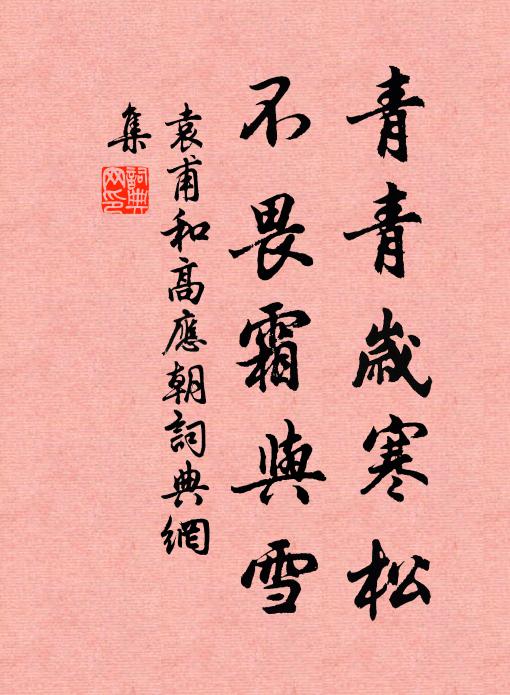 青青歲寒松
不畏霜與雪
袁甫和高應朝詞典網
集
詞典
网印